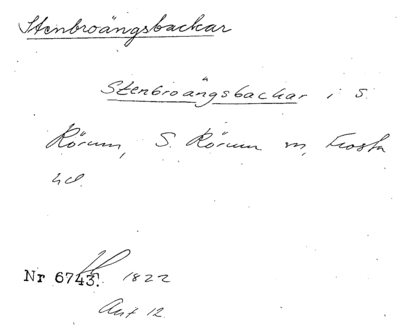 Stenbroängsbackar
Stenbroängsbackar i S.
Rörum, S. Rörum sn, Frosta
hd.
Nr 6743. 1822
Akt 12